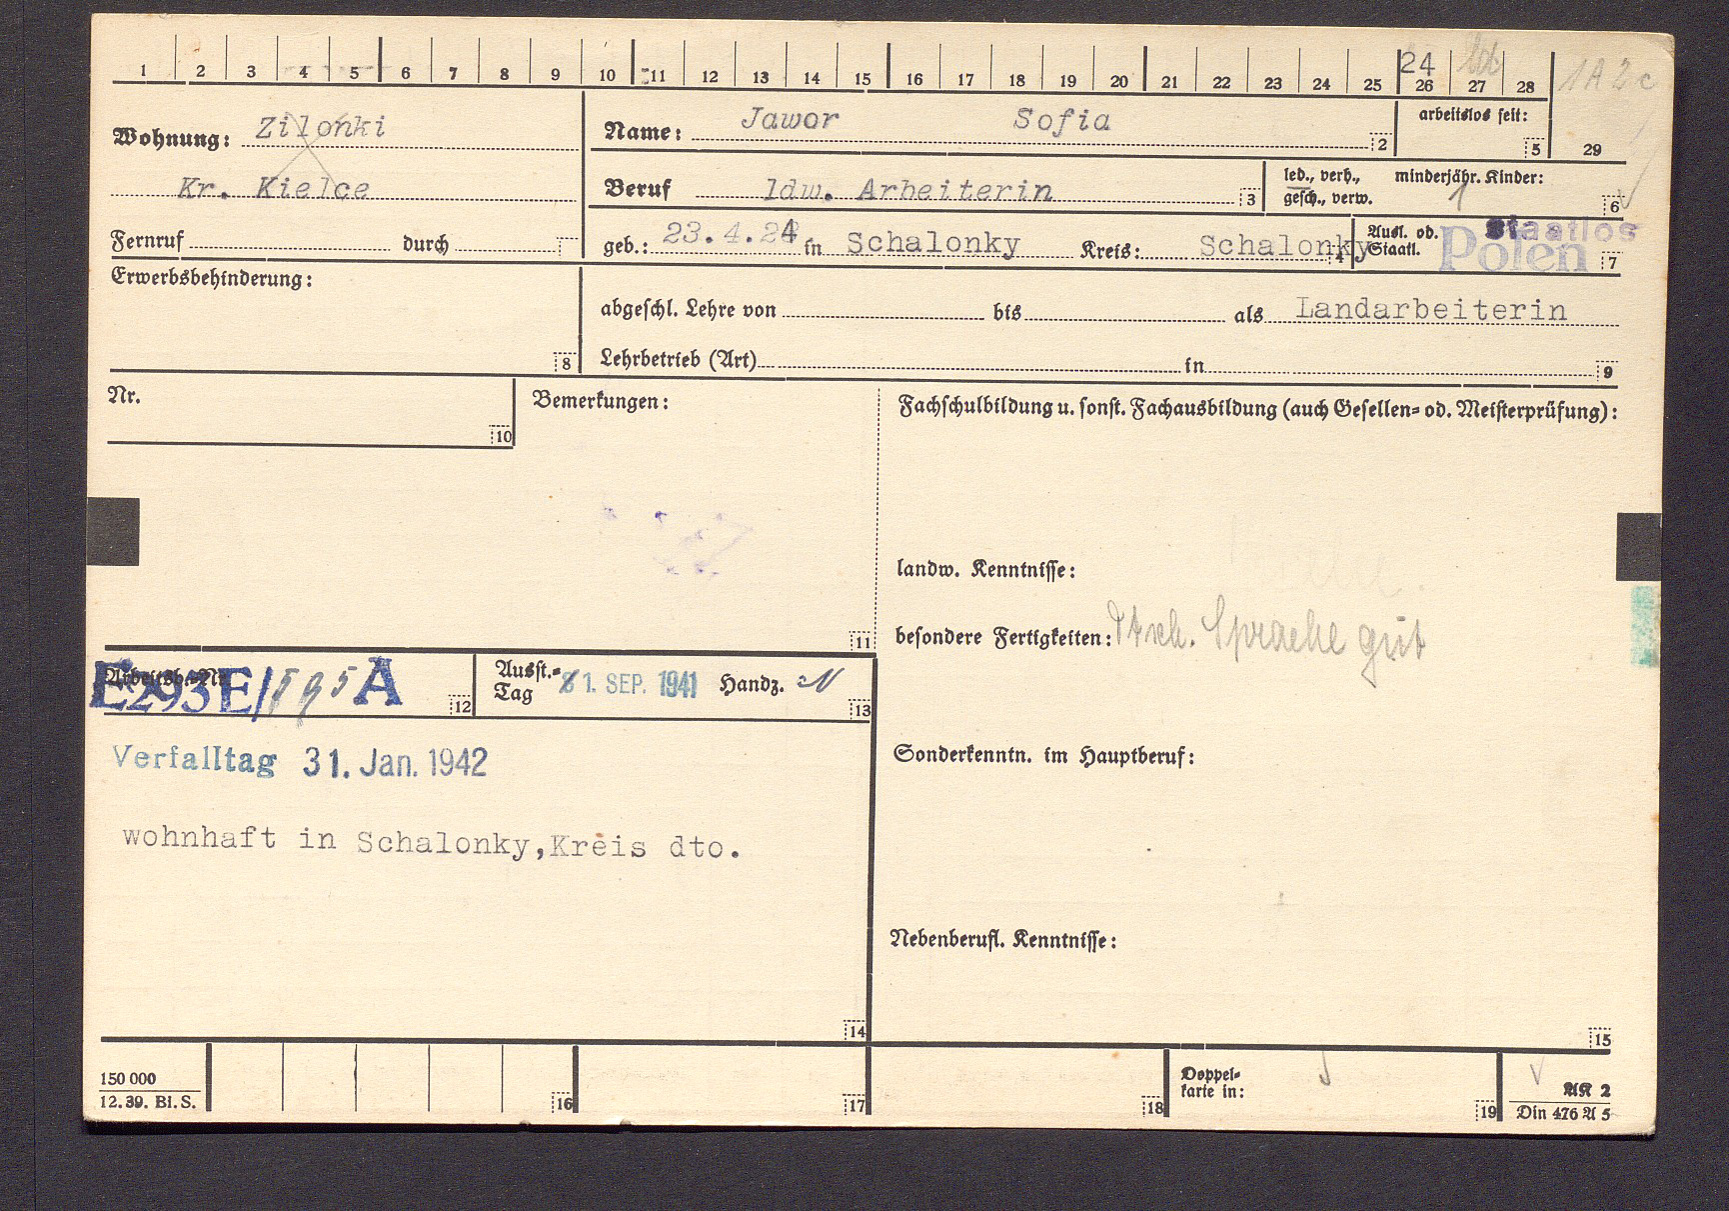 1 2 3 4 5 6 7 8 9 10 11 12 13 14 15 16 17 18 19 20 21 22 23 24 25 26 27 28
24
1A 2c
29
Wohnung: Zilonki
Kr. Kielce
Name: Jawor Sofia 2
arbeitslos seit: 5
Beruf ldw. Arbeiterin 3
led., verh., gesch., verw. minderjähr. Kinder: 1 6
Fernruf durch
geb.: 23.4.24 in Schalonky Kreis: Schalonky 4
Ausl. od. Staatl. Staatlos Polen 7
Erwerbsbehinderung: 8
abgeschl. Lehre von bis als Landarbeiterin
Lehrbetrieb (Art) in 9
Nr. 10
Bemerkungen: 11
Fachschulbildung u. sonst. Fachausbildung (auch Gesellen= od. Meisterprüfung):
landw. Kenntnisse:
besondere Fertigkeiten: Dtsch. Sprache gut
Arbeitsb.=Nr. E293E/595A 12
Ausst.=Tag 1. SEP. 1941 Handz. 13
Verfalltag 31. Jan. 1942
Sonderkenntn. im Hauptberuf:
wohnhaft in Schalonky, Kreis dto.
14
Nebenberufl. Kenntnisse:
15
150 000
12. 39. Bl. S.
16 17 18
Doppel=
karte in: 19
AK 2
Din 476 A 5